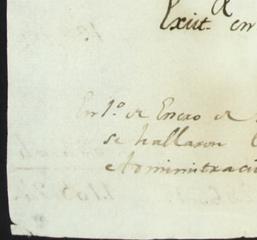 Exist. en
En 1.º de Enero de
se hallaron
Administraci